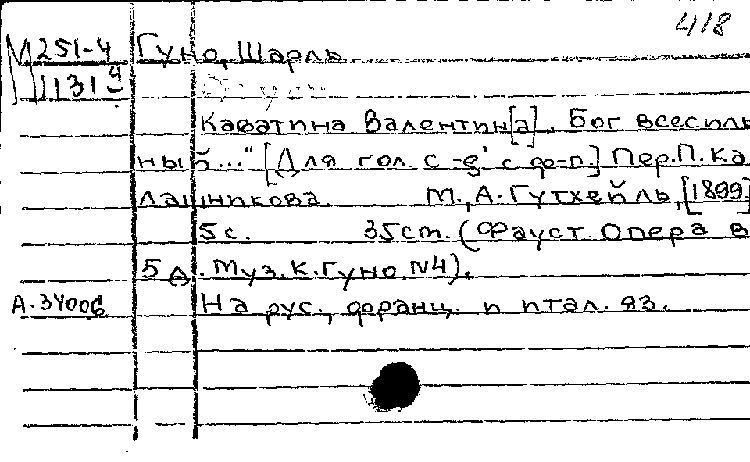 418
М 251-4 Гуно, Шарль.
1131 Фауст
Каватина Валентин[а] „Бог всесиль
ный..." [Для гол. с -g' с ф-п.] Пер. П. Ка
лашникова. М., А. Гутхейль, [1899]
5 с. 35 cm. (Фауст. Опера в
5 д. Муз. К. Гуно. N4).
А. 34006 На рус., франц. и итал. яз.